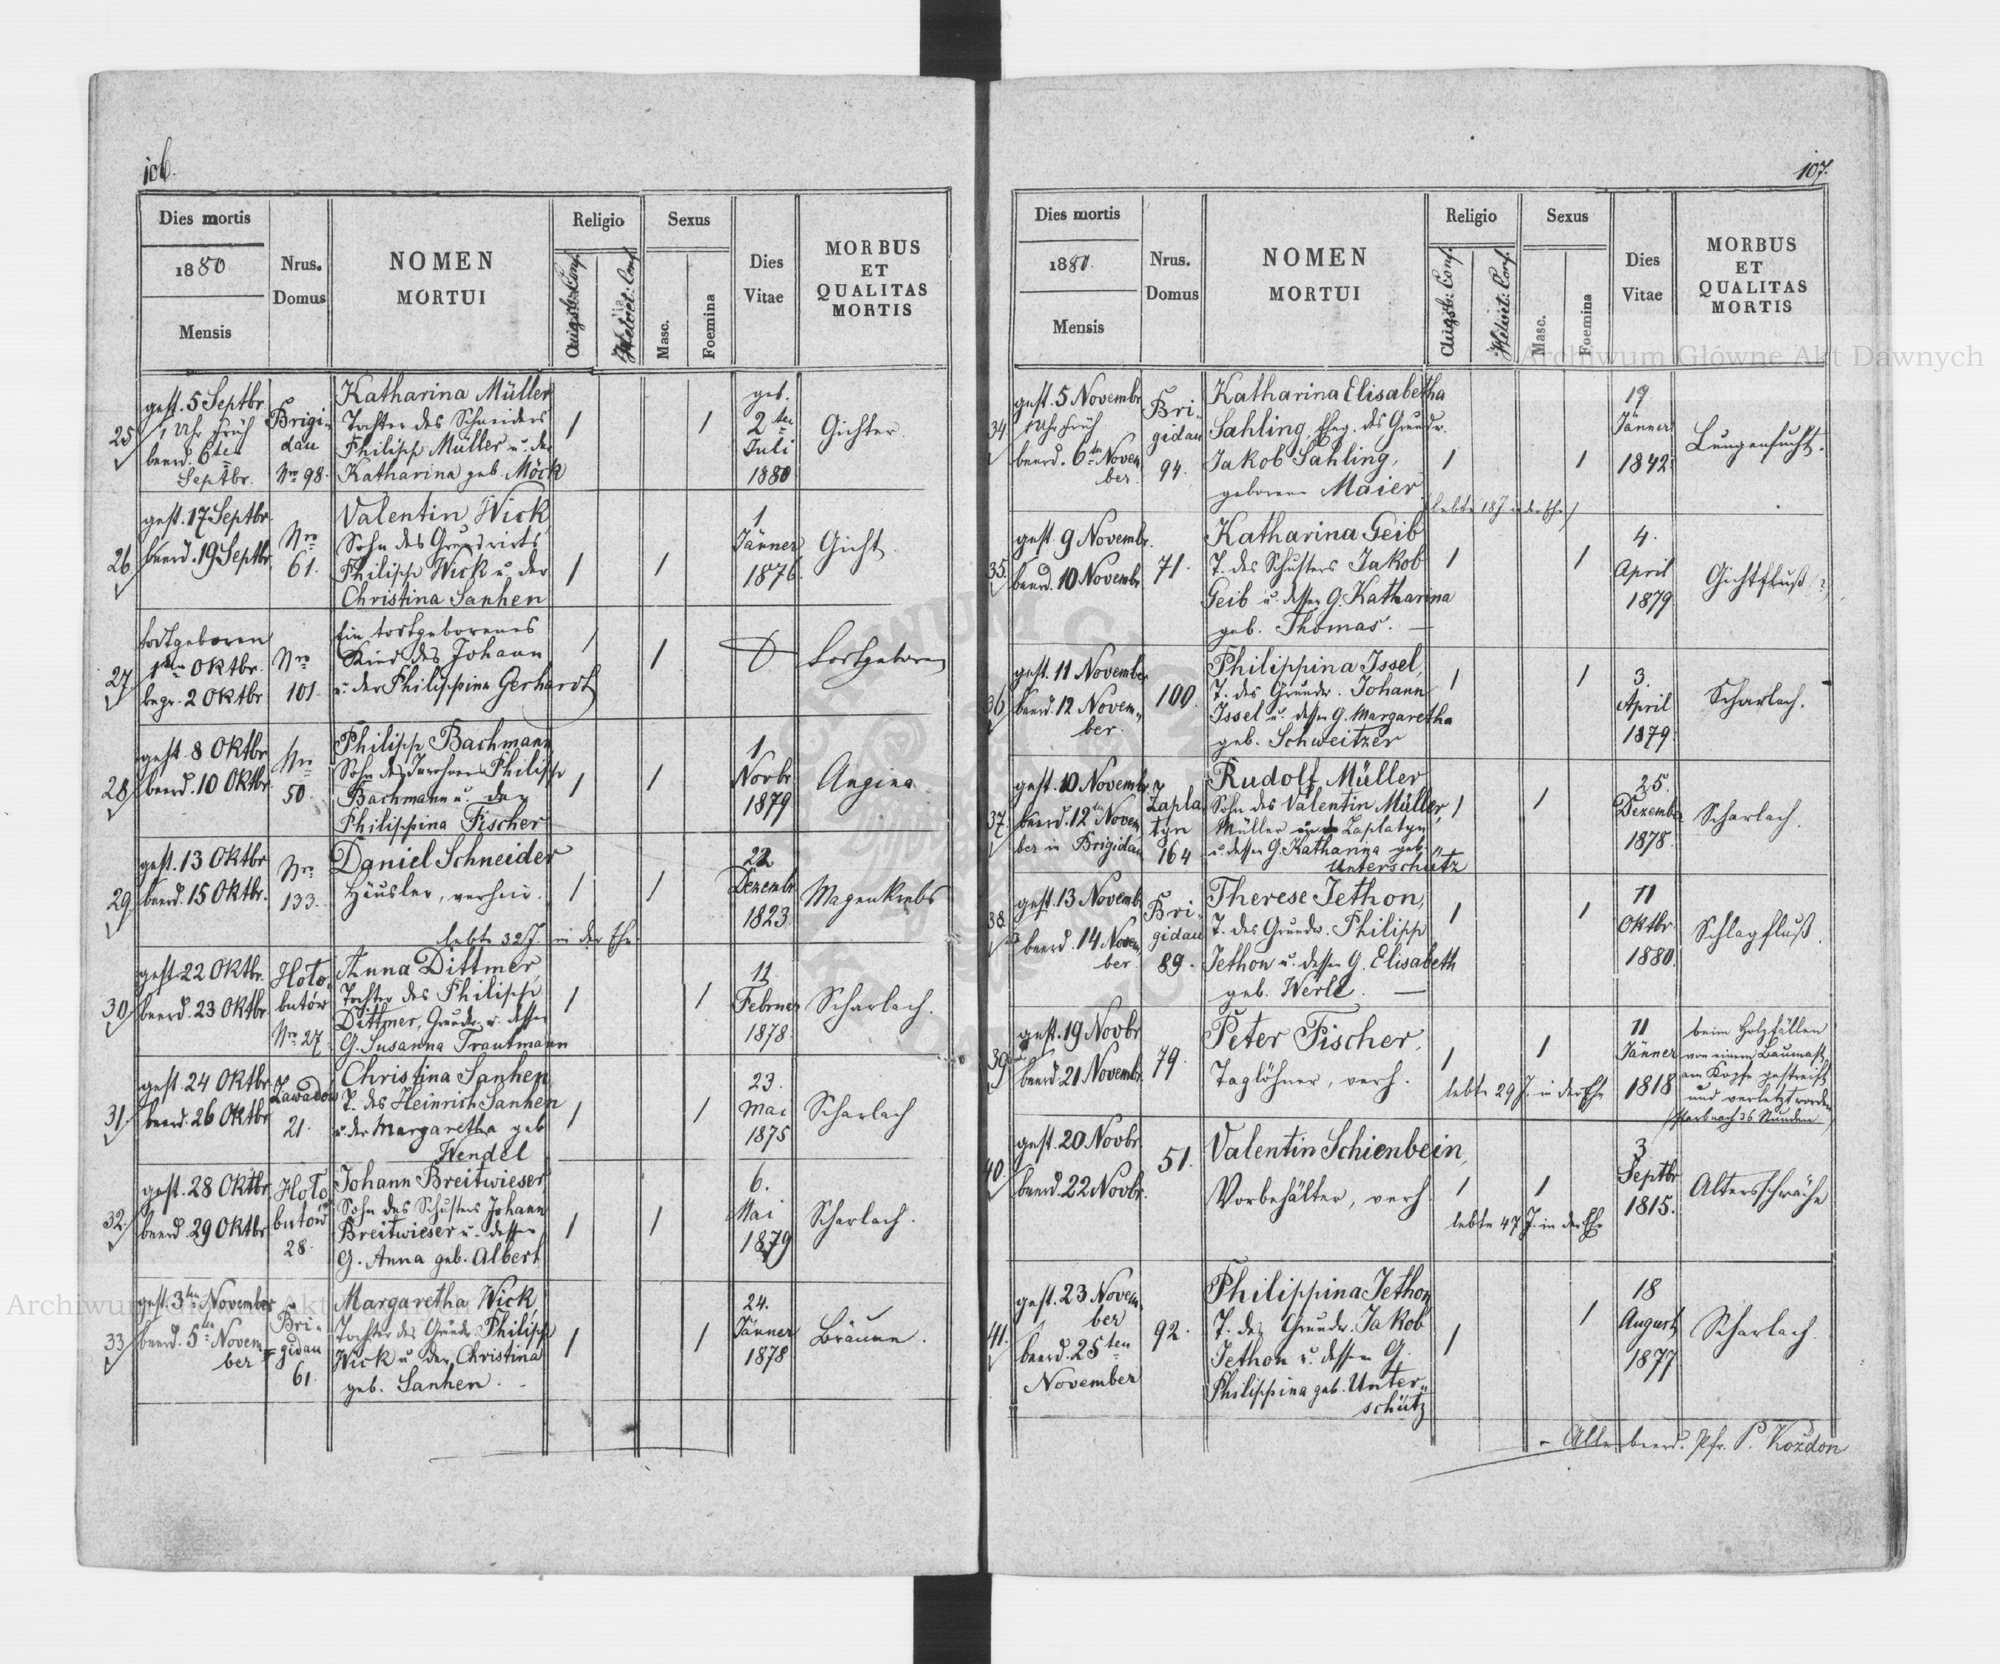 106.
Dies mortis
1880
Mensis
Nrus.
Domus
NOMEN
MORTUI
Religio
Augsb: Conf.
Helvet: Conf.
Sexus
Masc.
Foemina
Dies
Vitae
MORBUS
ET
QUALITAS
MORTIS
25
gest. 5 Septbr
1 Uhr früh
beerd. 6ten
Septbr.
Brigi-
dau
Nro 98.
Katharina Müller
Tochter des Schneiders
Philipp Müller u. der
Katharina geb. Möck
geb.
2ten
Juli
1880
Gichter.
26
gest. 17 Septbr.
beerd. 19 Septbr.
Nro
61.
Valentin Wick
Sohn des Grundwirts
Philipp Wick u. der
Christina Sanhen
1
Jänner
1876.
Gicht.
27
todtgeboren
1ten Oktbr.
begr. 2 Oktbr
Nro
101.
Ein todtgeborenes
Kind des Johann
u. der Philippina Gerhardt
todtgeboren
28
gest. 8 Oktbr
beerd. 10 Oktbr.
Nro
50.
Philipp Bachmann
Sohn des Philipp
Bachmann u. der
Philippina Fischer
1
Novbr
1879
Angina.
29
gest. 13 Oktbr.
beerd. 15 Oktbr.
Nro
133.
Daniel Schneider
Häusler, verheir.
lebte 32 J. in der Ehe.
22
Dezembr.
1823.
Magenkrebs
30
gest. 22 Oktbr.
beerd. 23 Oktbr.
Holo-
butów
Nro 27.
Anna Dittmer,
Tochter des Philipp
Dittmer, Grundw. u. dessen
G. Susanna Trautmann
11.
Februar
1878.
Scharlach.
31
gest. 24 Oktbr.
beerd. 26 Oktbr.
Zawadów
21.
Christina Sanhen
T. des Heinrich Sanhen
u. der Margaretha geb
Wendel
23.
Mai
1875
Scharlach
32.
gest. 28 Oktbr.
beerd. 29 Oktbr.
Holo
butów
28.
Johann Breitwieser
Sohn des Schusters Johann
Breitwieser u. dessen
G. Anna geb. Albert
6.
Mai
1879
Scharlach.
33
gest. 3ten November
beerd. 5ten Novem-
ber
Bri-
gidau
61.
Margaretha Wick,
Tochter des Grundw. Philipp
Wick u. der Christina
geb. Sanhen.
24.
Jänner
1878
Bräune.
107.
Dies mortis
1880.
Mensis
Nrus.
Domus
NOMEN
MORTUI
Religio
Augsb: Conf.
Helvet: Conf.
Sexus
Masc.
Foemina
Dies
Vitae
MORBUS
ET
QUALITAS
MORTIS
34
gest. 5 Novembr
1 Uhr früh
beerd. 6ten Novem
ber.
Bri-
gidau
94.
Katharina Elisabetha
Sahling, Eheg. des Grundw.
Jakob Sahling,
geborene Maier
(lebte 18 J in der Ehe)
19
Jänner
1842.
Lungensucht.
35.
gest. 9 Novembr.
beerd. 10 Novembr.
71.
Katharina Geib
T. des Schusters Jakob
Geib u. dessen G. Katharina
geb. Thomas. —
4.
April
1879
Gichtfluß
36
gest. 11 November
beerd. 12 Novem-
ber.
100.
Philippina Issel,
T. des Grundw. Johann
Issel u. dessen G. Margaretha
geb. Schweitzer
3.
April
1879
Scharlach.
37.
gest. 10 Novembr.
beerd. 12ten Novem
ber in Brigidau
Zapla
tyn
164
Rudolf Müller
Sohn des Valentin Müller,
Müller in Zaplatyn
u. dessen G. Katharina geb.
Unterschütz
25.
Dezember
1878.
Scharlach.
38.
gest. 13 Novemb.
beerd. 14 Novem,
ber
Bri-
gidau
89.
Therese Jethon,
T. des Grundw. Philipp
Jethon u. dessen G. Elisabeth
geb. Werle. —
11
Oktbr
1880.
Schlagfluß.
39.
gest. 19 Novbr
beerd. 21 Novembr.
79.
Peter Fischer.
Taglöhner, verh.
lebte 29 J. in der Ehe
11
Jänner
1818
beim Holzfällen
von einem Baumast
am Kopfe gestreift
und verletzt worden
starb nach 36 Stunden
40.
gest. 20 Novbr
beerd. 22 Novbr.
51.
Valentin Schienbein,
Vorbehälter, verh.
lebte 47 J. in der Ehe
3
Septbr
1815.
Altersschwäche
41.
gest. 23 Novem-
ber
beerd. 25ten
November
92.
Philippina Jethon
T. des Grundw. Jakob
Jethon u. dessen G.
Philippina geb. Unter-
schütz
18
August
1877.
Scharlach.
Alle beerd. Pfr. P. Kozdon
Archiwum Główne Akt Dawnych